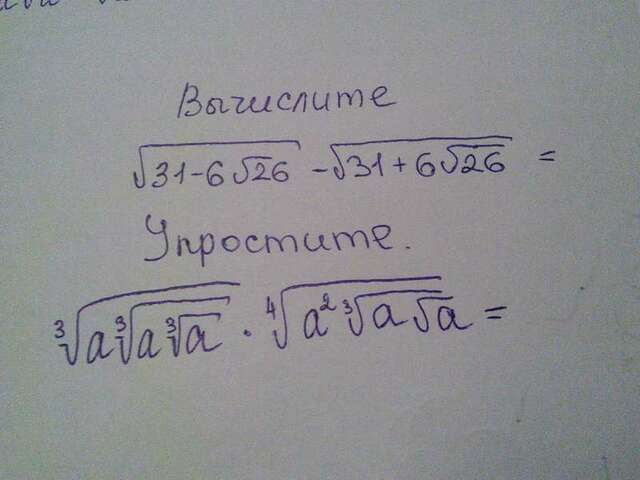 Вычислите
√(31-6√26) - √(31+6√26) =
Упростите.
∛(a∛(a∛a)) · ∜(a²∛(a√a)) =